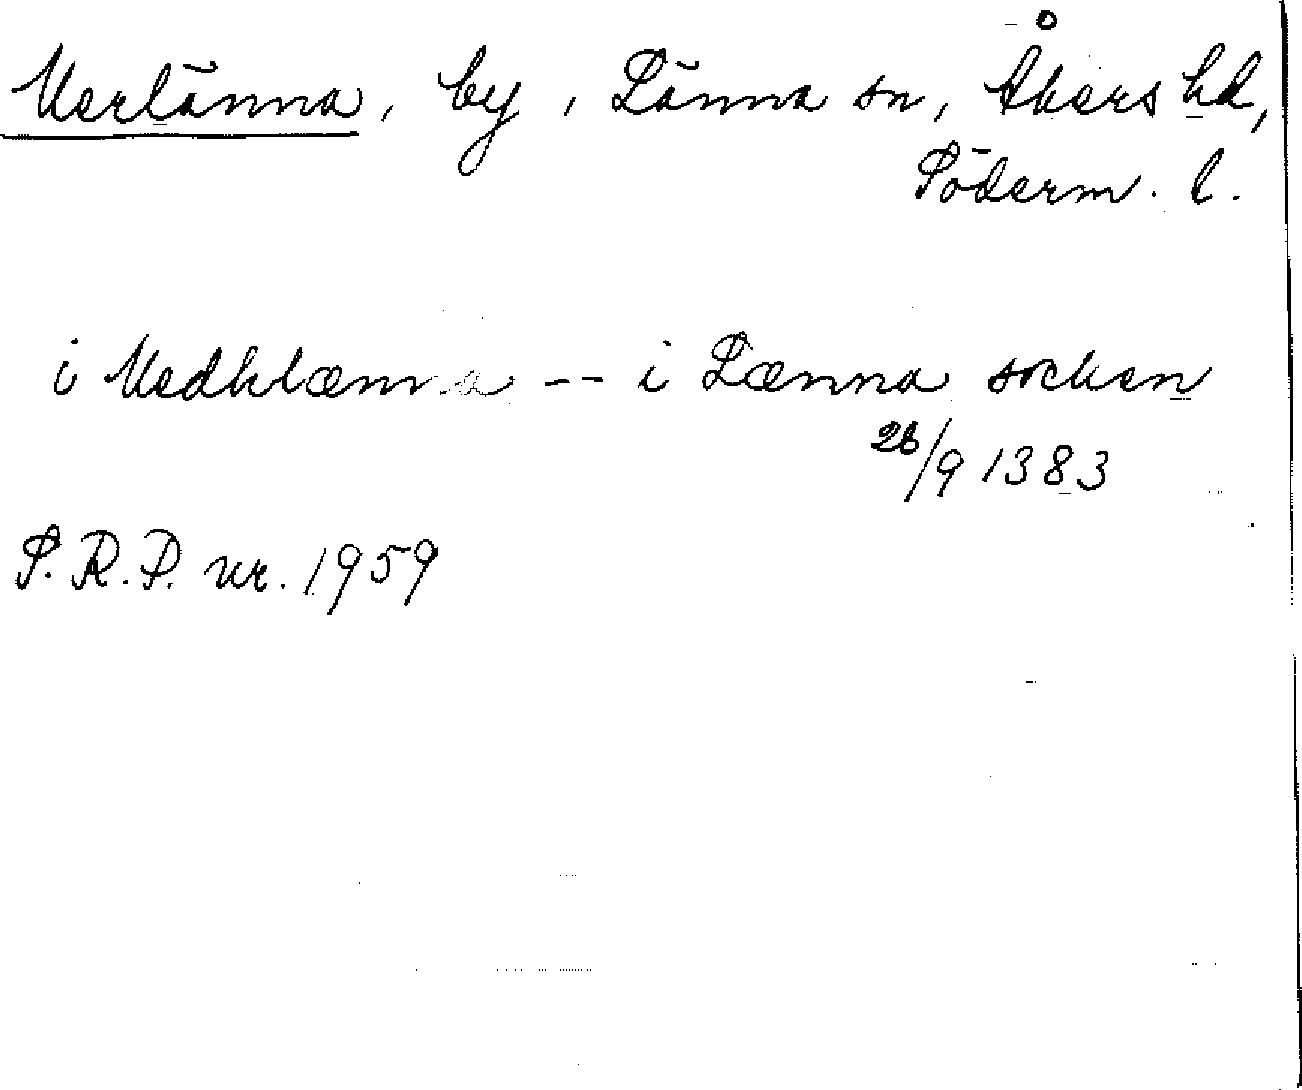 Merlänna, by, Länna sn, Åkers hd,
Söderm. l.
i Medhlænna -- i Lænna socken
26/9 1383
S.R.P. nr. 1959